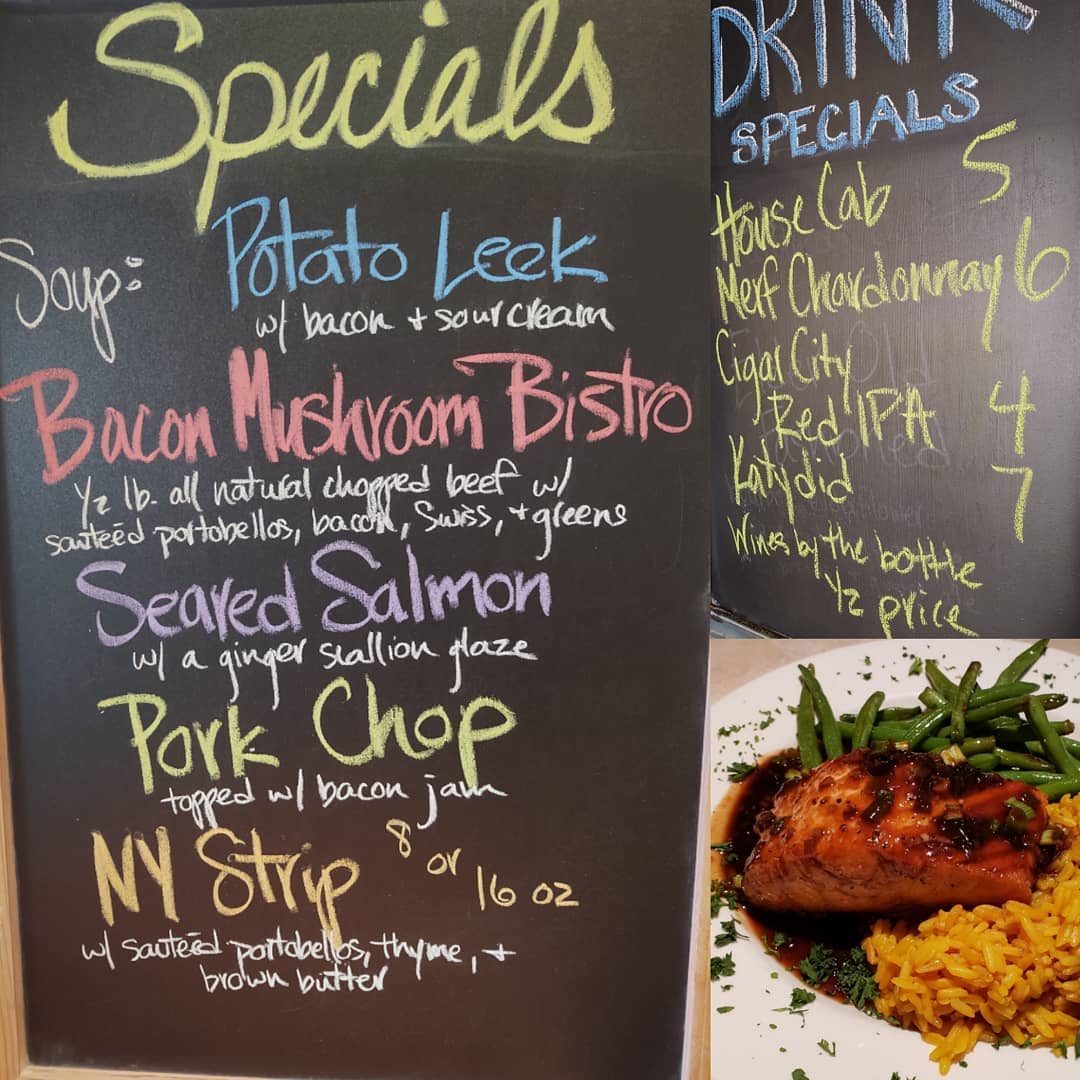 Specials
Soup: Potato Leek
w/ bacon + sour cream
Bacon Mushroom Bistro
1/2 lb. all natural chopped beef w/
sauteēd portobellos, bacon, Swiss, + greens
Seared Salmon
w/ a ginger scallion glaze
Pork Chop
topped w/ bacon jam
NY Strip 8 or 16 oz
w/ sauteēd portobellos, thyme, +
brown butter
DRINK
SPECIALS
House Cab 5
Merf Chardonnay 6
Cigar City
Red IPA 4
Katydid 7
Wines by the bottle
1/2 price